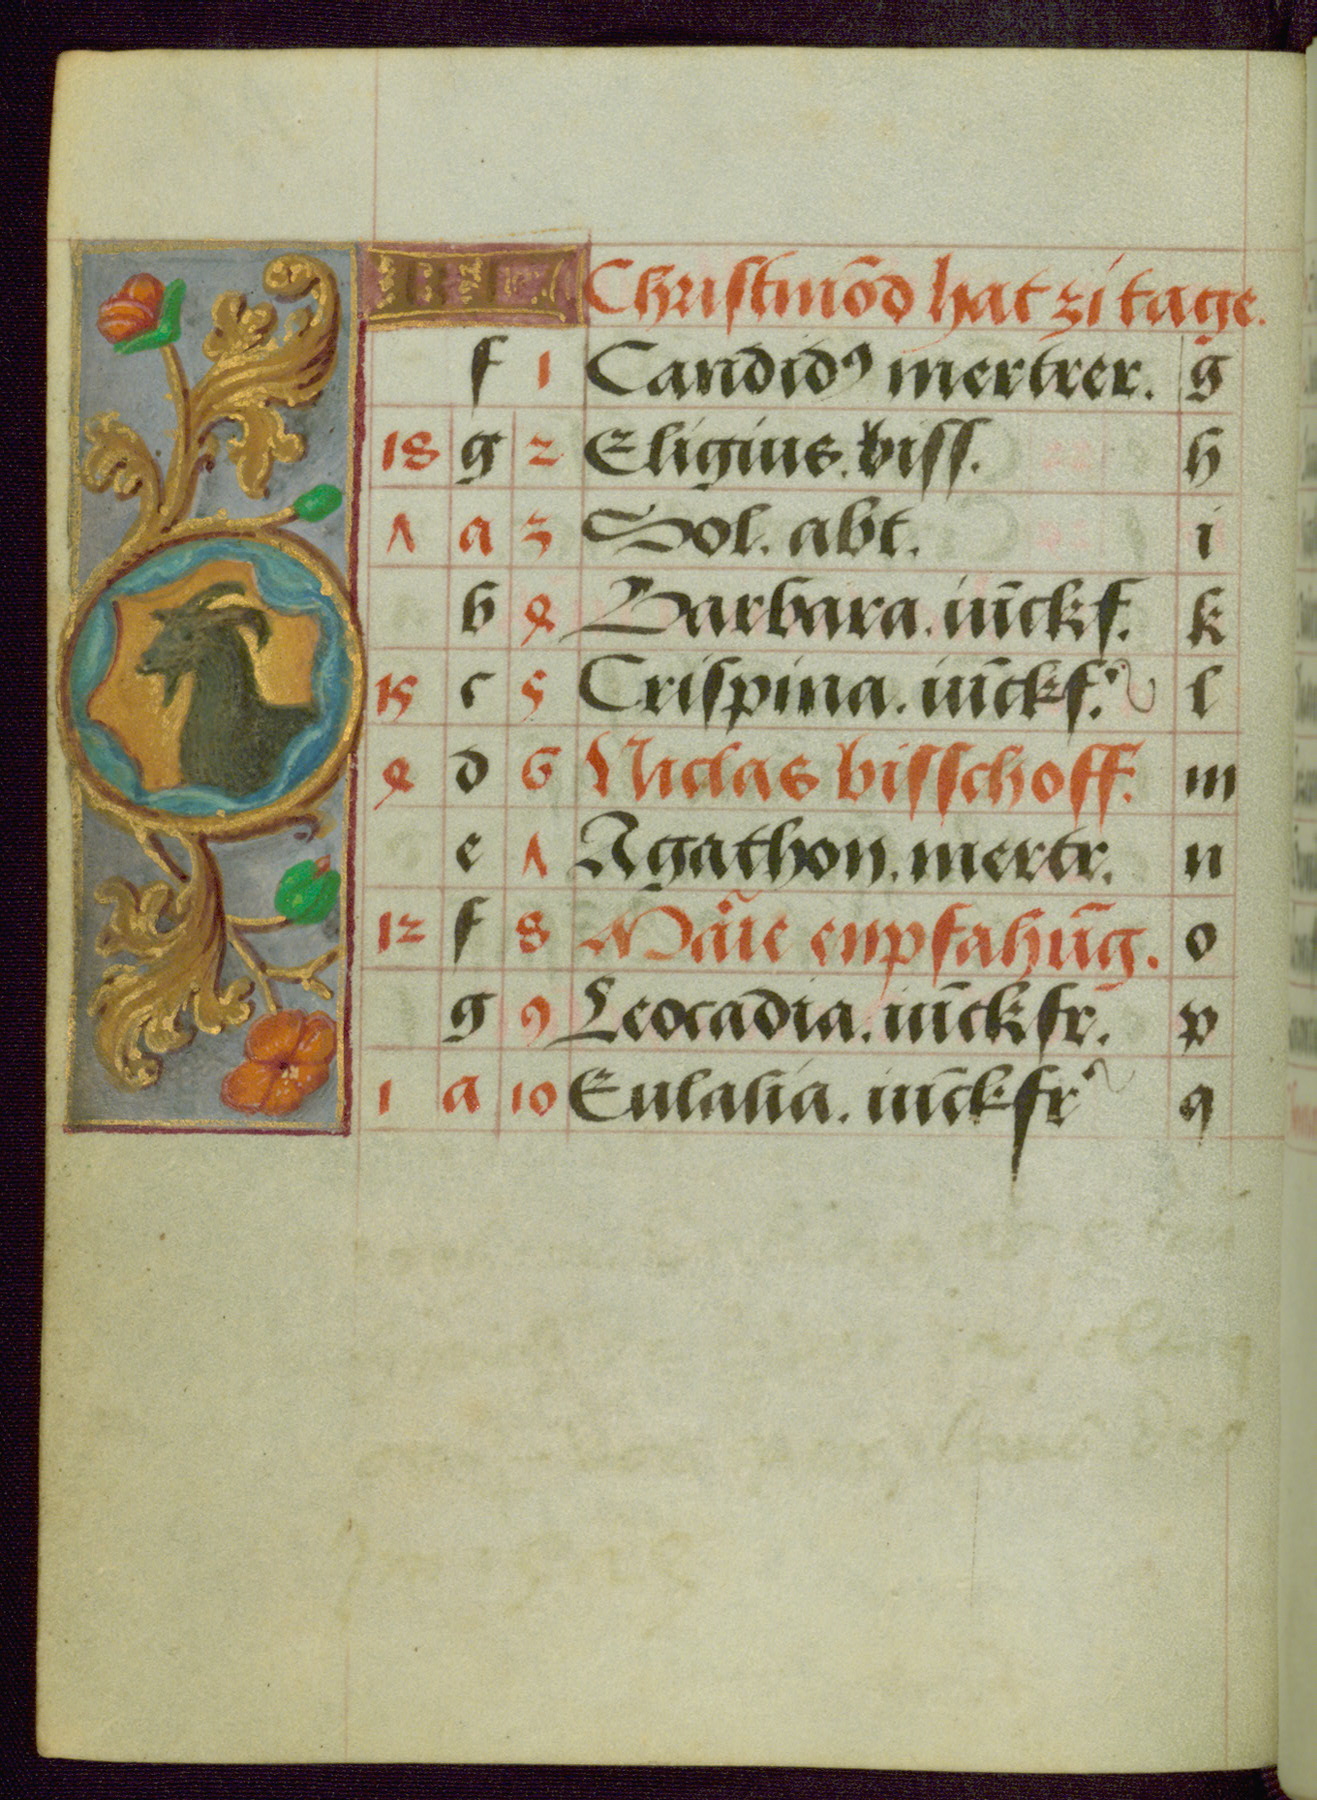 KL Christmōd hat 31 tage.
f 1 Candidꝰ mertrer. g
18 g 2 Eligius. biss. h
7 a 3 Sol. abt. i
b 4 Barbara. iūckf. k
15 c 5 Crispina. iūckf. l
4 d 6 Niclas bisschoff. m
e 7 Agathon. mertr. n
12 f 8 Marie enpfahūg. o
g 9 Leocadia. iūckfr. p
1 a 10 Eulalia. iūckfr q